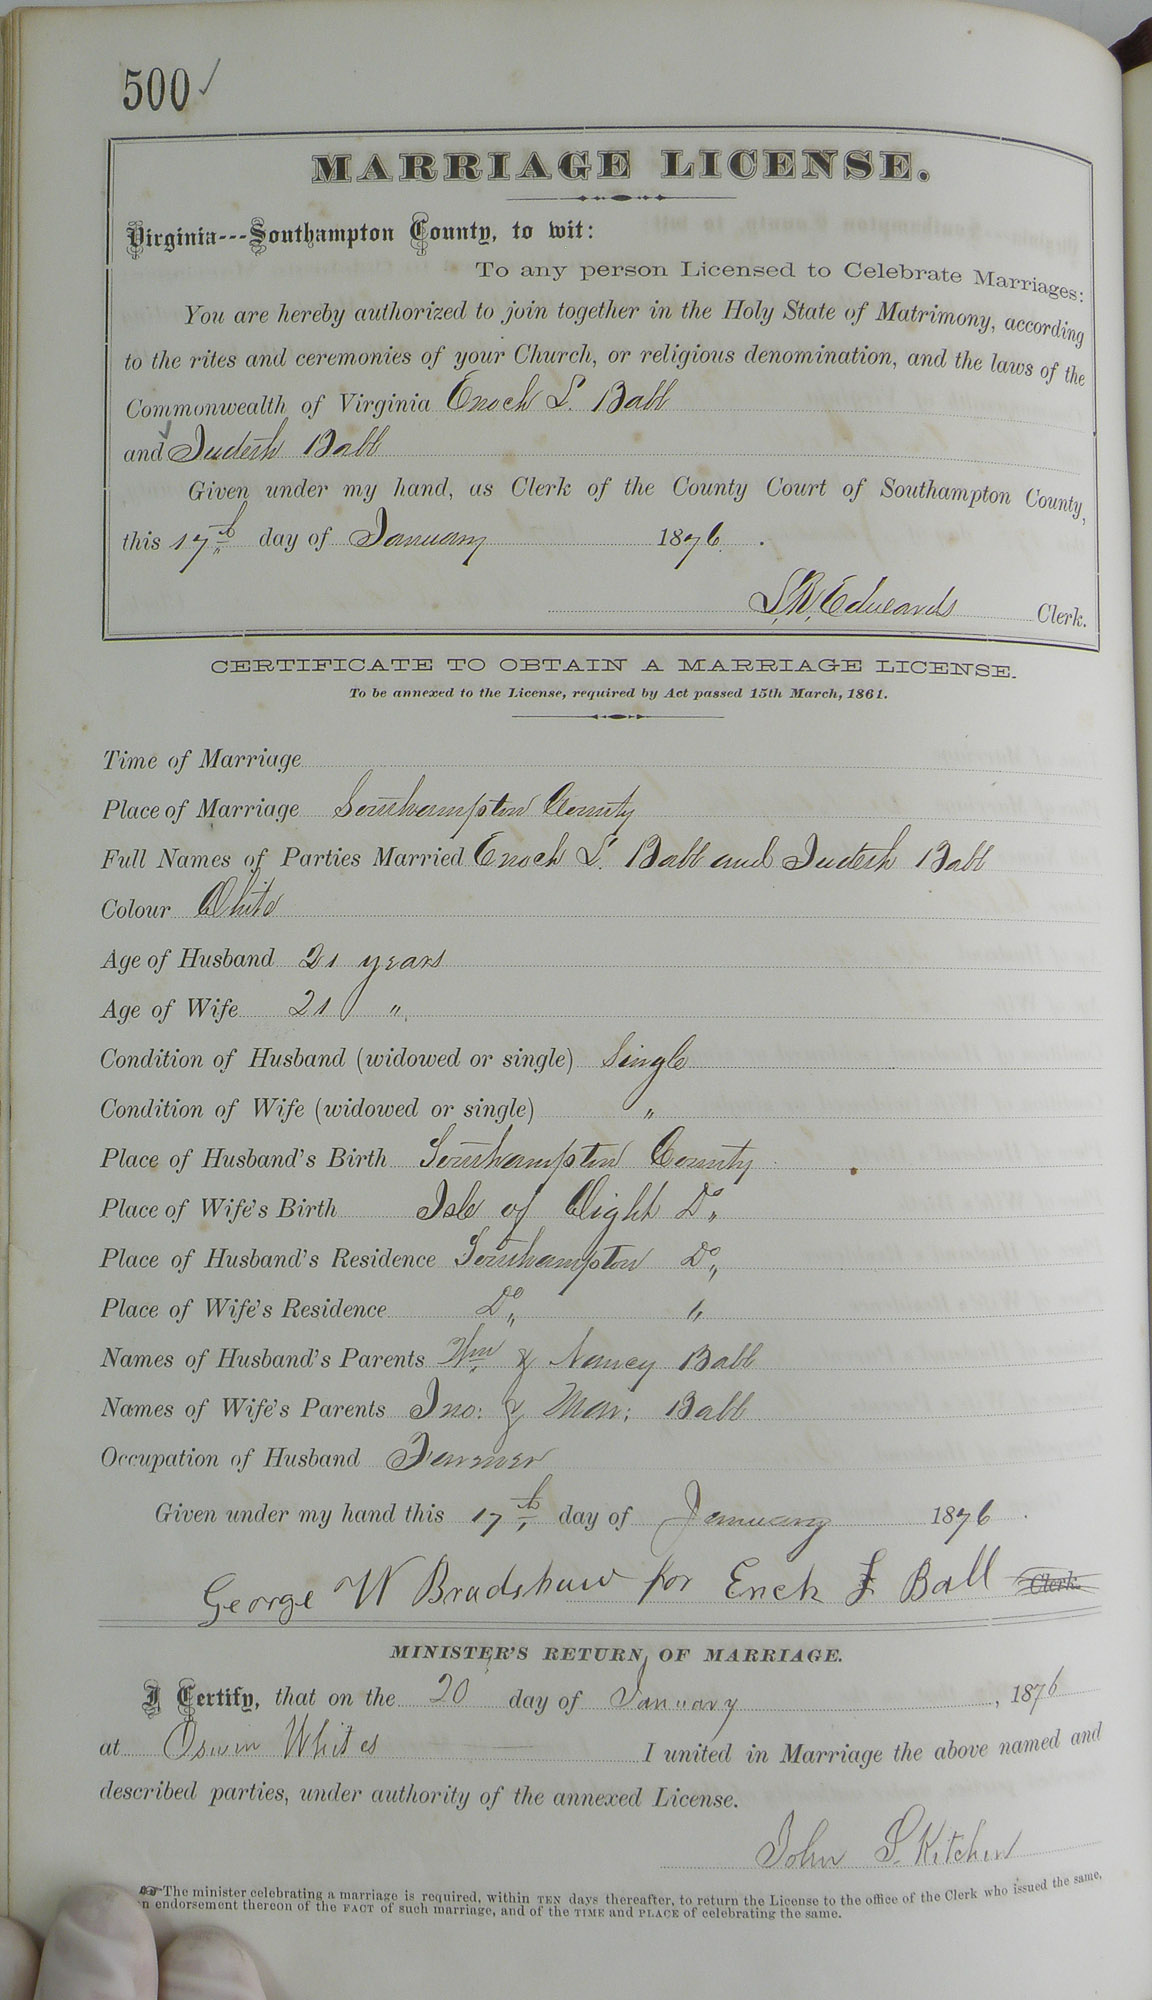 500 ✓
MARRIAGE LICENSE.
Virginia---Southampton County, to wit:
To any person Licensed to Celebrate Marriages:
You are hereby authorized to join together in the Holy State of Matrimony, according
to the rites and ceremonies of your Church, or religious denomination, and the laws of the
Commonwealth of Virginia Enoch L. Babb
and Judeth Babb
Given under my hand, as Clerk of the County Court of Southampton County,
this 17th day of January 1876.
L.R. Edwards Clerk.
CERTIFICATE TO OBTAIN A MARRIAGE LICENSE.
To be annexed to the License, required by Act passed 15th March, 1861.
Time of Marriage
Place of Marriage Southampton County
Full Names of Parties Married Enoch L. Babb and Judeth Babb
Colour White
Age of Husband 21 years
Age of Wife 21 "
Condition of Husband (widowed or single) Single
Condition of Wife (widowed or single) "
Place of Husband's Birth Southampton County
Place of Wife's Birth Isle of Wight Do "
Place of Husband's Residence Southampton Do "
Place of Wife's Residence Do " "
Names of Husband's Parents Wm & Nancy Babb
Names of Wife's Parents Jno: & Mar: Babb
Occupation of Husband Farmer
Given under my hand this 17th day of January 1876.
George W Bradshaw for Enck Ball Clerk.
MINISTER'S RETURN OF MARRIAGE.
I Certify, that on the 20 day of January, 1876
at Oswin Whites I united in Marriage the above named and
described parties, under authority of the annexed License.
John S. Kitchen
☞ The minister celebrating a marriage is required, within TEN days thereafter, to return the License to the office of the Clerk who issued the same,
n endorsement thereon of the FACT of such marriage, and of the TIME and PLACE of celebrating the same.